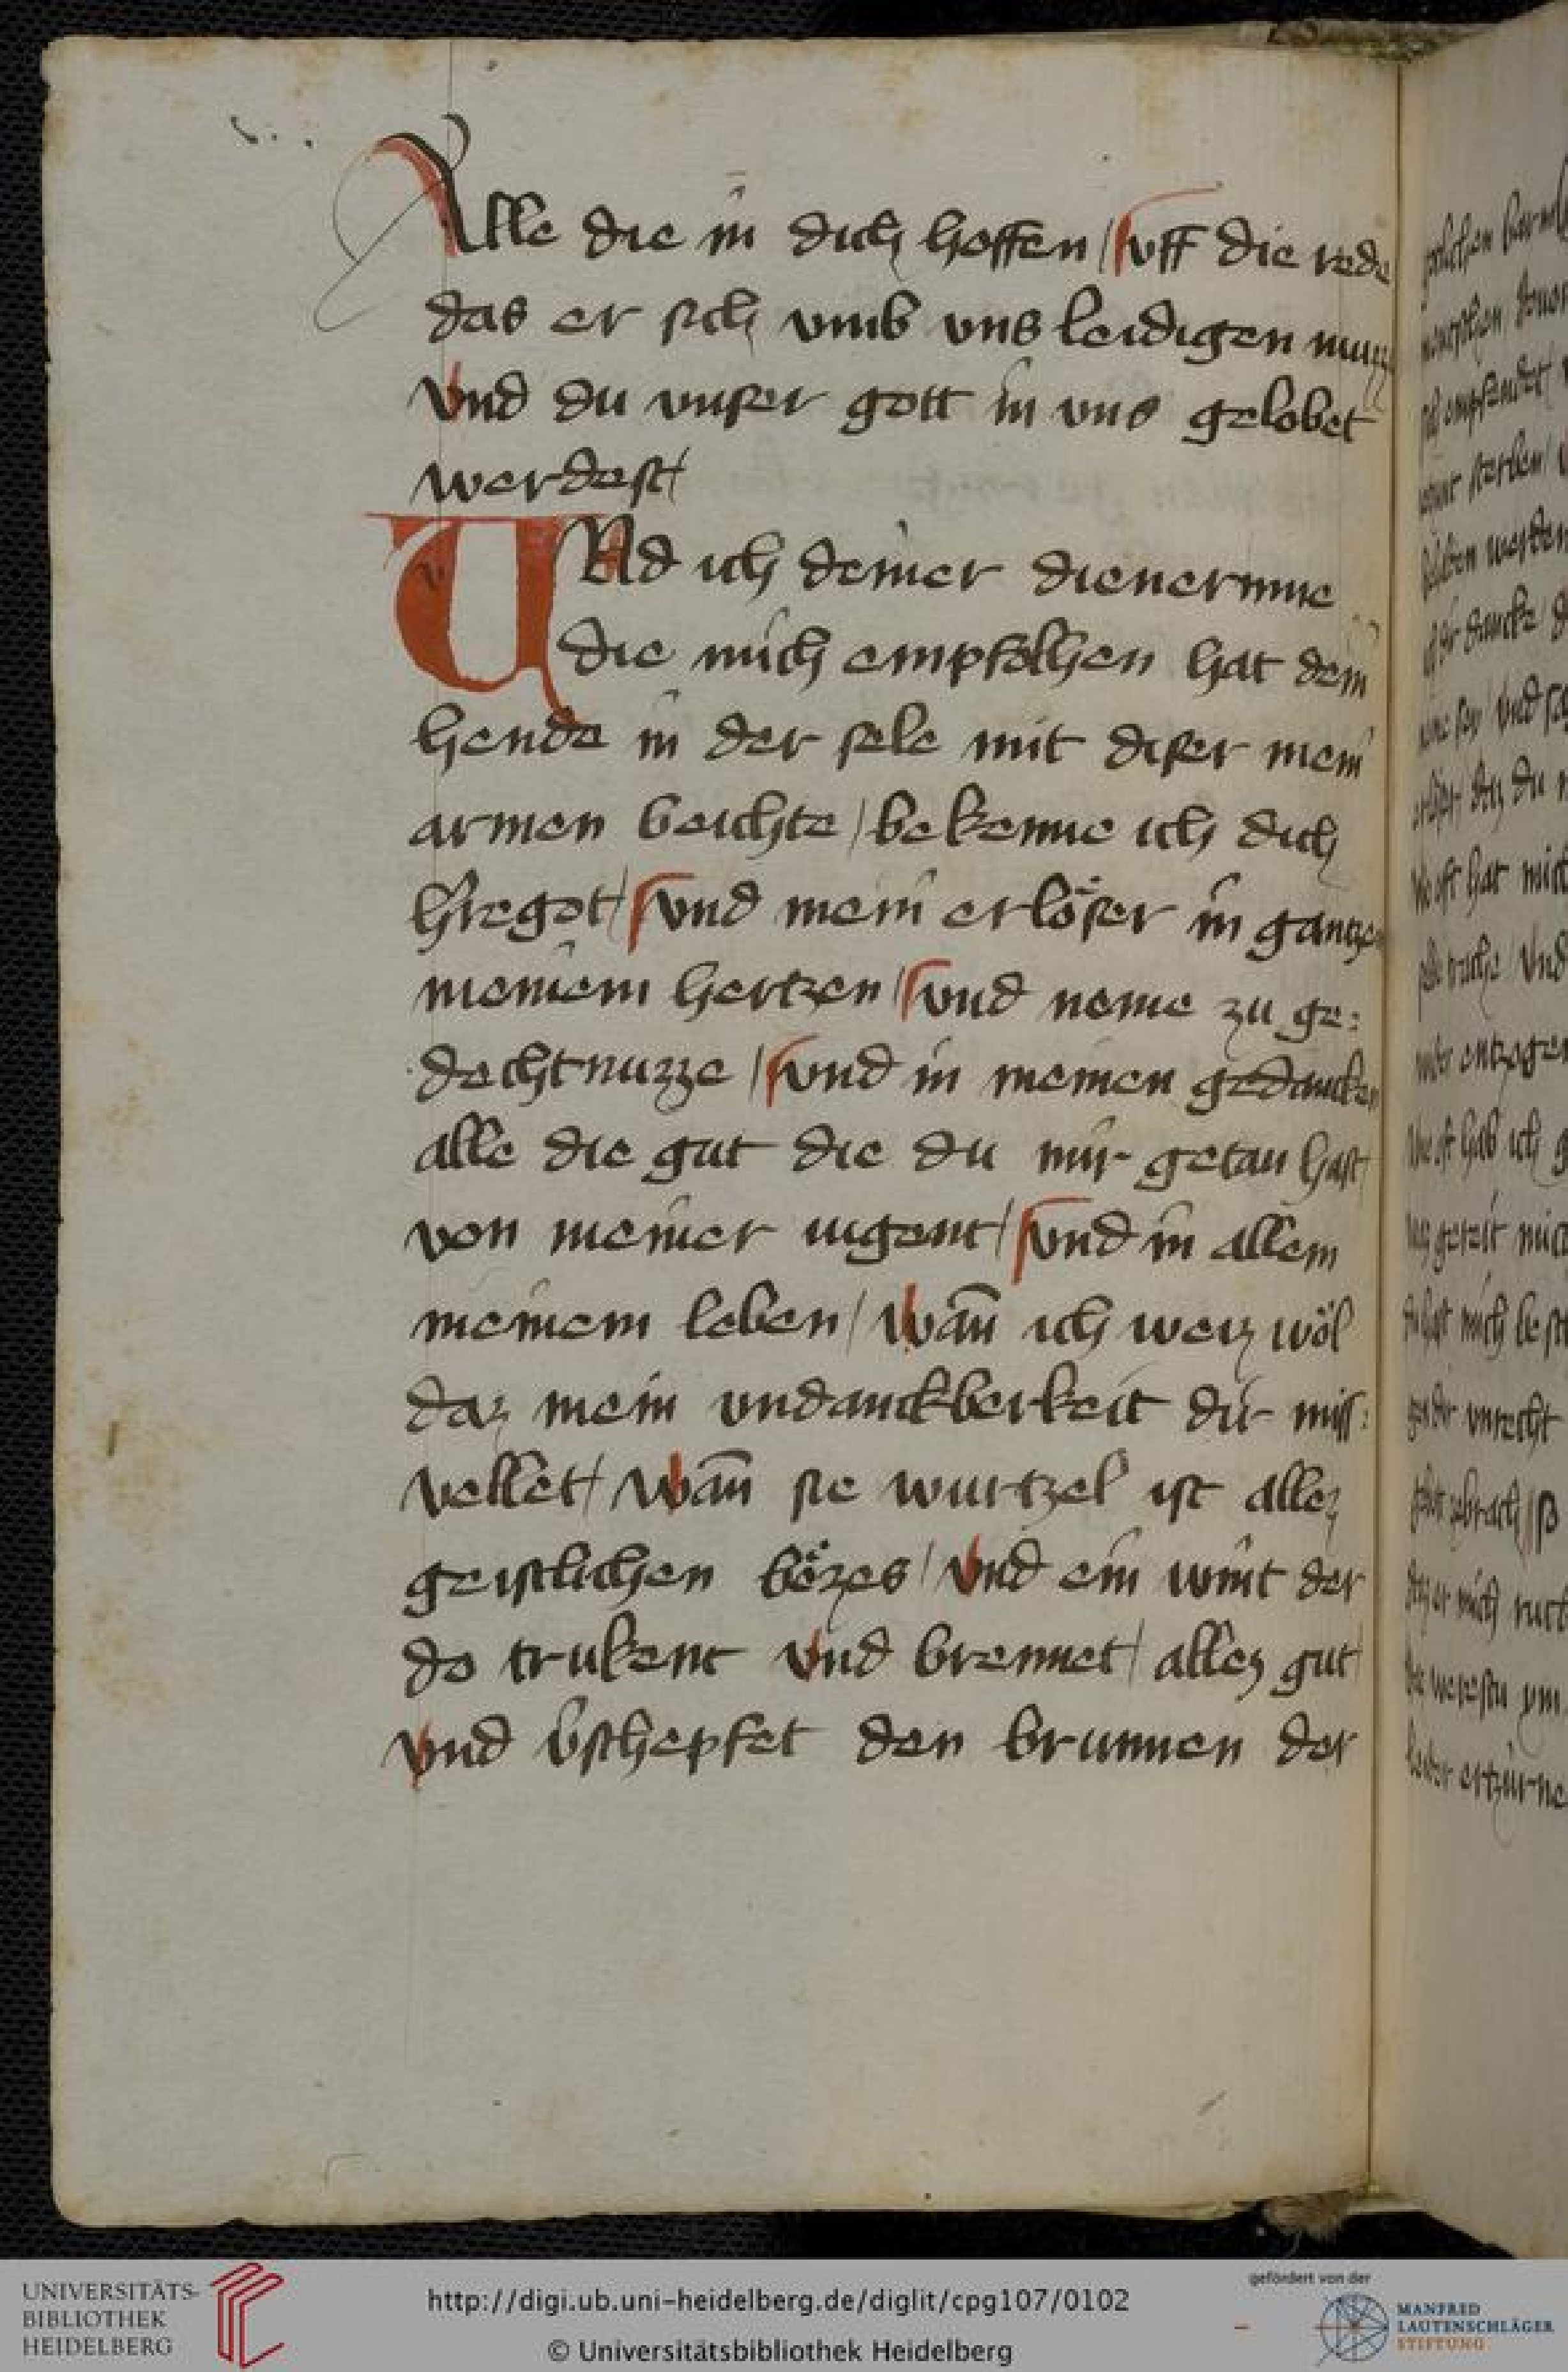 Alle die in dich hoffen / uff die rede
das er sich vmb vns leidigen muzz
Vnd du vnser gott in vns gelobet
werdest /
UNd ich deiner dienerinne
die mich empfolhen hat dein
hende in der sele mit diser mein
armen beichte / bekenne ich dich
hregot / vnd mein erlöser in gantze
meinem hertzen / vnd neme zu ge:
dechtnuzze / vnd in meinen gedancken
alle die gut die du mir getan hast
von meiner iugent / vnd in allem
meinem leben / Wañ ich weiz wöl
daz mein vndanckberkeit dir miss:
vellet / Wañ sie wurtzel ist allez
geistlichen bözes / Vnd ein wint der
do trukent Vnd brennet / allez gut
Vnd v̉schepfet den brunnen der
UNIVERSITÄTS-
BIBLIOTHEK
HEIDELBERG
http://digi.ub.uni-heidelberg.de/diglit/cpg107/0102
© Universitätsbibliothek Heidelberg
gefördert von der
MANFRED
LAUTENSCHLÄGER
STIFTUNG